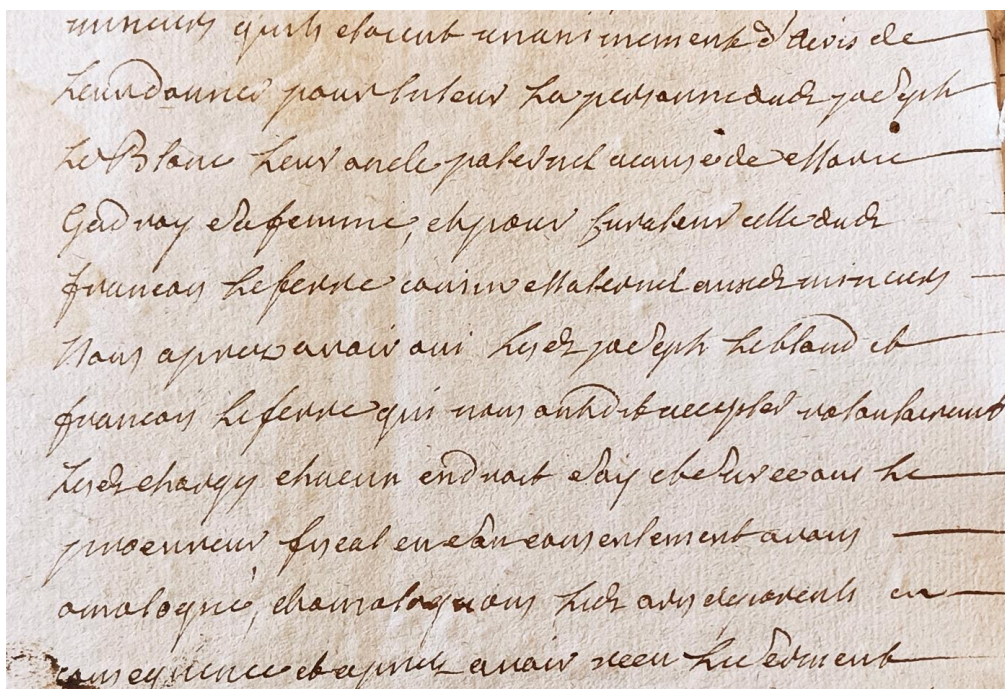 mineurs quils etoient unanimement d'avis de
Leur donner pour tuteur La personne dud. joseph
Le Blanc Leur oncle paternel a cause de Marie
Gadray sa femme, et pour curateur celle dud.
francois Lefevre cousin Maternel auxd. mineurs
Nous apres avoir oui Lesd. joseph Leblanc et
francois Lefevre qui nous ont dit accepter volontairement
Lesd. charges chacun endroit soy et de Le
procureur fiscal en son consentement avons
omologué, et omologuons Led. avis de parents en
consequence et apres avoir receu Le serment